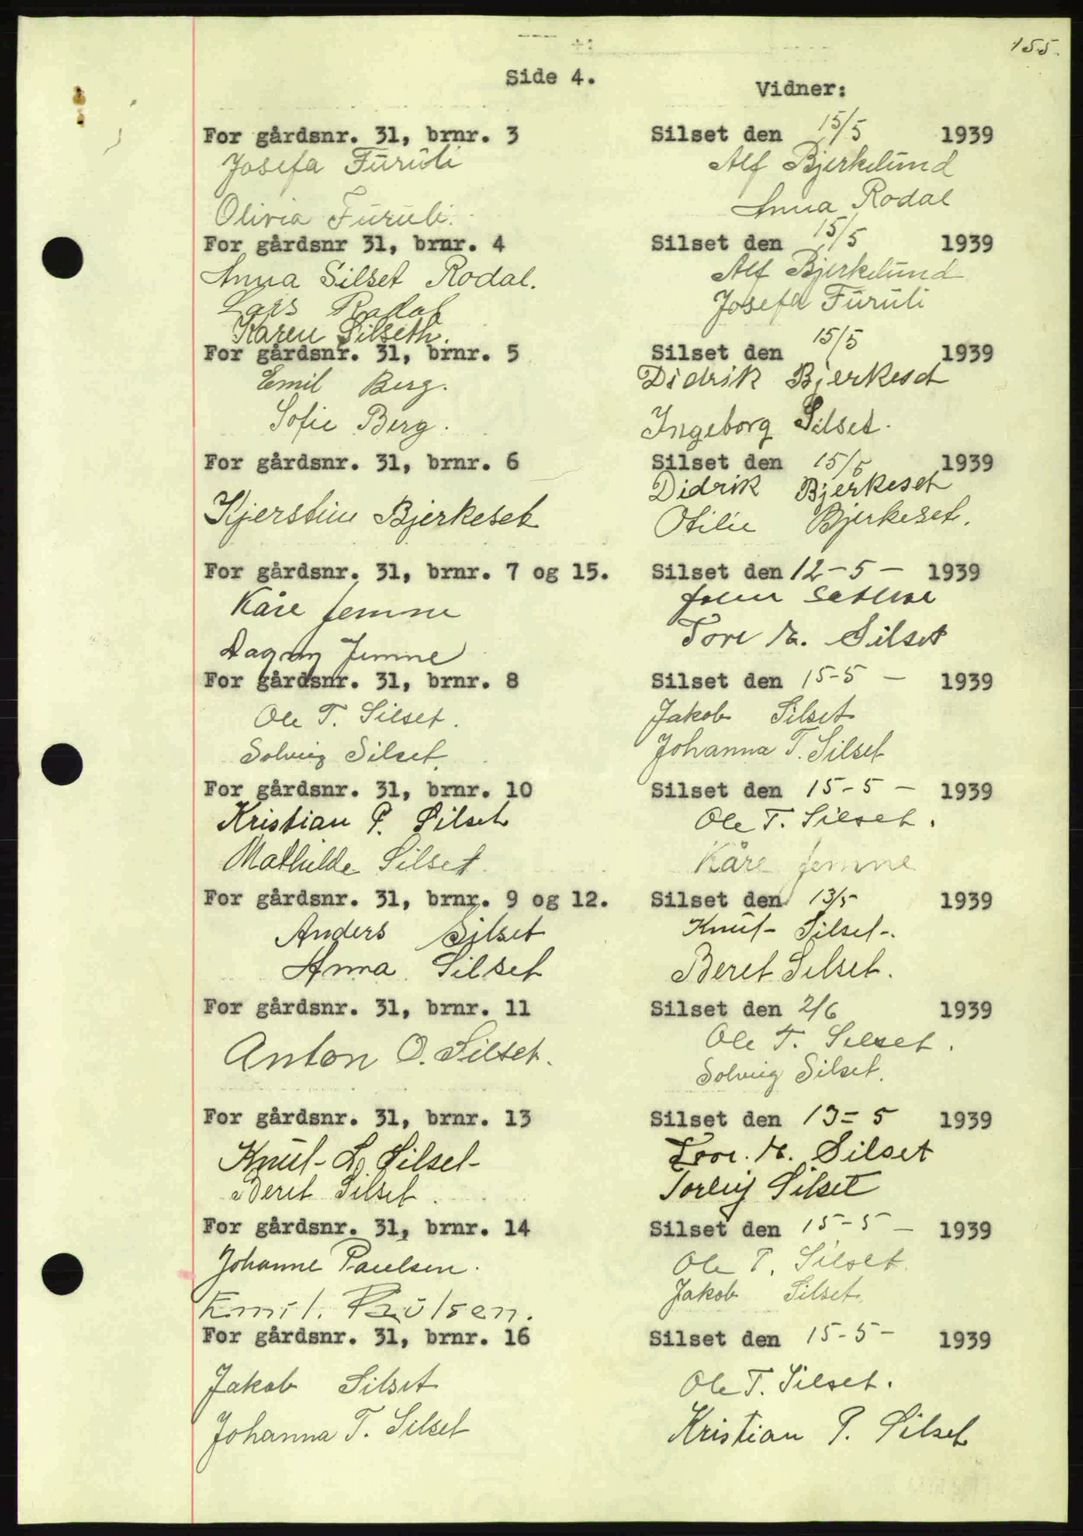 155.
Side 4.
Vidner:
For gårdsnr. 31, brnr. 3 Silset den 15/5 1939
Josefa Furuli Alf Bjerkelund
Olivia Furuli. Anna Rodal
For gårdsnr 31, brnr. 4 Silset den 15/5 1939
Anna Silset Rodal. Alf Bjerkelund
Lars Rodal Josefa Furuli
Karen Silseth.
For gårdsnr. 31, brnr. 5 Silset den 15/5 1939
Emil Berg. Didrik Bjerkeset
Sofie Berg. Ingeborg Silset.
For gårdsnr. 31, brnr. 6 Silset den 15/5 1939
Didrik Bjerkeset
Kjerstine Bjerkeset Otilie Bjerkeset.
For gårdsnr. 31, brnr. 7 og 15. Silset den 12-5- 1939
Kåre Jemne John
Dagny Jemne Tore M. Silset
For gårdsnr. 31, brnr. 8 Silset den 15-5 - 1939
Ole T. Silset. Jakob Silset
Solveig Silset. Johanna T. Silset
For gårdsnr. 31, brnr. 10 Silset den 15-5 - 1939
Kristian P. Silset Ole T. Silset.
Mathilde Silset Kåre Jemne
For gårdsnr. 31, brnr. 9 og 12. Silset den 13/5 1939
Anders Silset Knut Silset.
Anna Silset Beret Silset.
For gårdsnr. 31, brnr. 11 Silset den 2/6 1939
Anton O. Silset. Ole T. Silset.
Solveig Silset.
For gårdsnr. 31, brnr. 13 Silset den 13-5 1939
Knut L. Silset Tore M. Silset
Beret Silset. Torleif Silset
For gårdsnr. 31, brnr. 14 Silset den 15-5- 1939
Johanne Paulsen. Ole T. Silset.
Emil. Paulsen. Jakob Silset.
For gårdsnr. 31, brnr. 16 Silset den 15-5- 1939
Jakob Silset Ole T. Silset.
Johanna T. Silset Kristian P. Silset